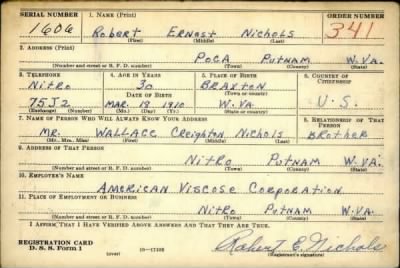 SERIAL NUMBER 1. NAME (Print) ORDER NUMBER
1606 Robert Ernest Nichols 341
(First) (Middle) (Last)
2. ADDRESS (Print)
POCA PUTNAM W.VA.
(Number and street or R. F. D. number) (Town) (County) (State)
3. TELEPHONE 4. AGE IN YEARS 5. PLACE OF BIRTH 6. COUNTRY OF CITIZENSHIP
Nitro 30 BRAXTON
DATE OF BIRTH (Town or county)
75J2 MAR. 19 1910 W.VA. U.S.
(Exchange) (Number) (Mo.) (Day) (Yr.) (State or country)
7. NAME OF PERSON WHO WILL ALWAYS KNOW YOUR ADDRESS 8. RELATIONSHIP OF THAT PERSON
Mr. WALLACE Creighton Nichols Brother
(Mr., Mrs., Miss) (First) (Middle) (Last)
9. ADDRESS OF THAT PERSON
Nitro PUTNAM W.VA.
(Number and street or R. F. D. number) (Town) (County) (State)
10. EMPLOYER'S NAME
AMERICAN VISCOSE CORPORATION
11. PLACE OF EMPLOYMENT OR BUSINESS
Nitro PUTNAM W.VA.
(Number and street or R. F. D. number) (Town) (County) (State)
I AFFIRM THAT I HAVE VERIFIED ABOVE ANSWERS AND THAT THEY ARE TRUE.
REGISTRATION CARD
D. S. S. Form 1 (over) Robert E. Nichols
(Registrant's signature)